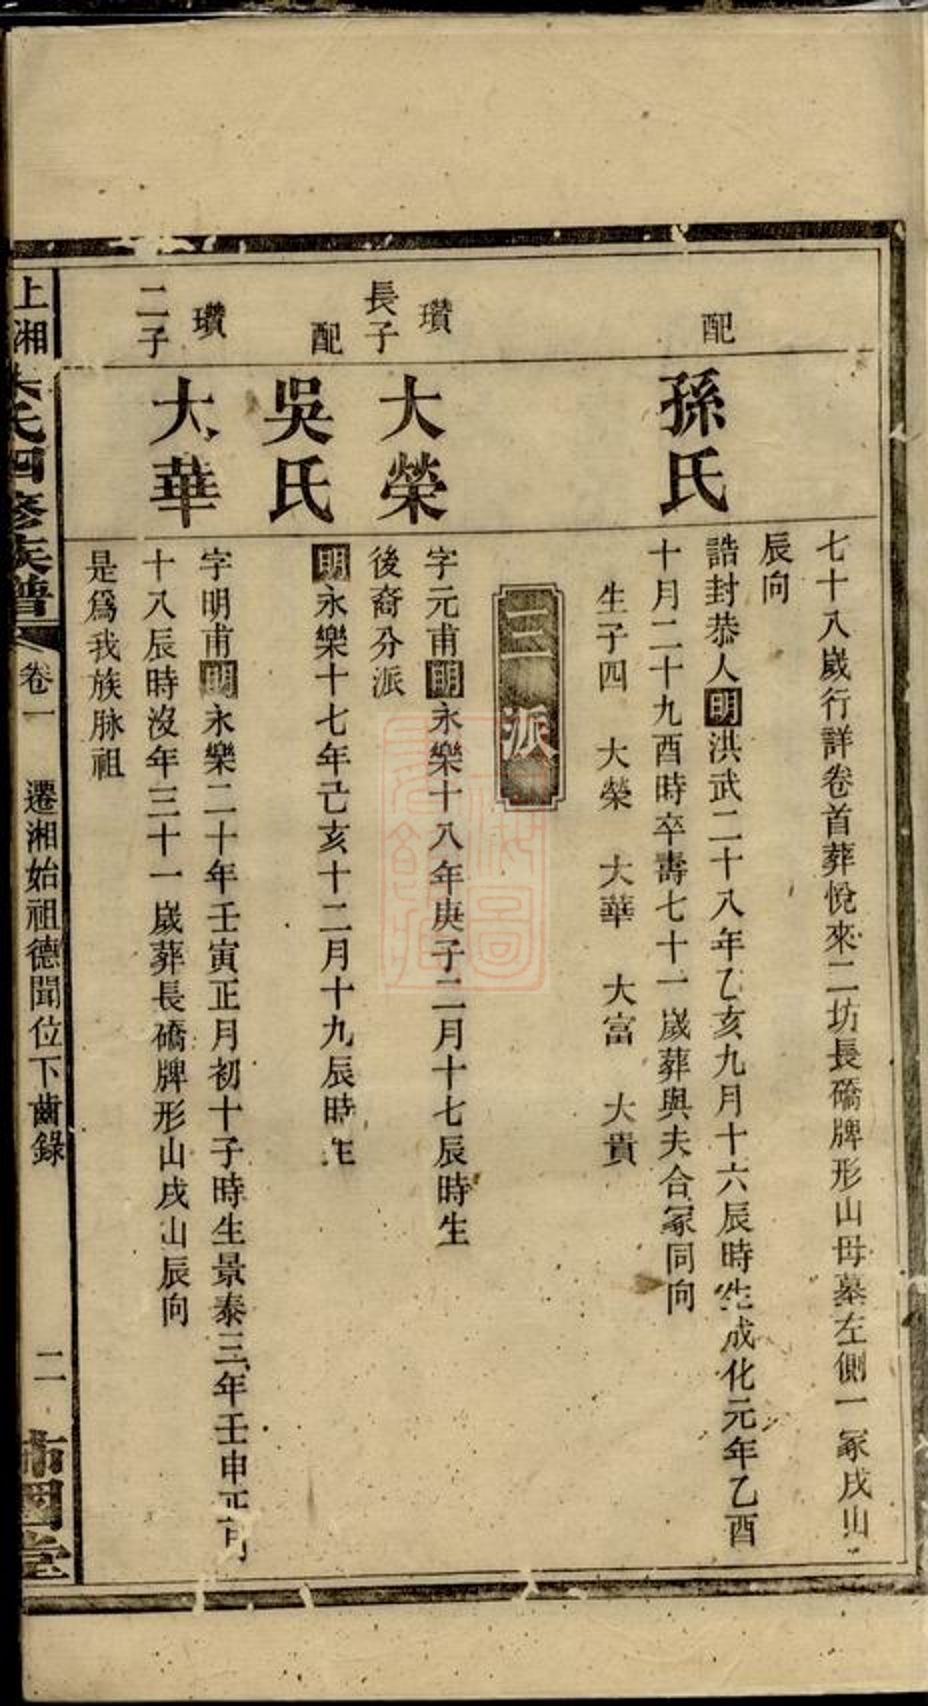 七十八歲行詳卷首葬悅來二坊長礄牌形山母墓左側一冢戌山
辰向
配
孫氏
誥封恭人明洪武二十八年乙亥九月十六辰時生成化元年乙酉
十月二十九酉時卒壽七十一歲葬與夫合冢同向
生子四 大榮 大華 大富 大貴
三派
瓚
長子
大榮
字元甫明永樂十八年庚子二月十七辰時生
後裔分派
配
吳氏
明永樂十七年己亥十二月十九辰時生
瓚
二子
大華
字明甫明永樂二十年壬寅正月初十子時生景泰三年壬申正月
十八辰時沒年三十一歲葬長礄牌形山戌山辰向
是為我族脉祖
上湘
氏四修族譜 卷一 遷湘始祖德聞位下齒錄 二